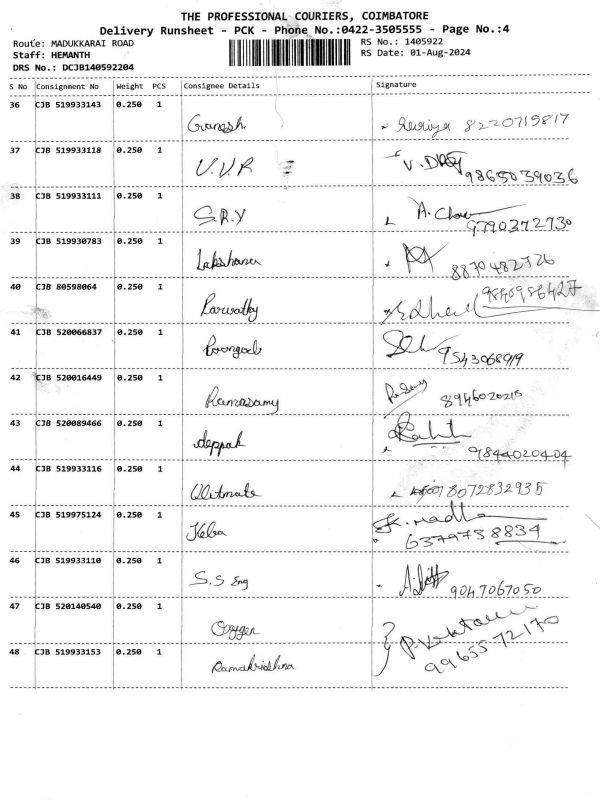 THE PROFESSIONAL COURIERS, COIMBATORE
Delivery Runsheet - PCK - Phone No.:0422-3505555 - Page No.:4
Route: MADUKKARAI ROAD
RS No.: 1405922
Staff: HEMANTH
RS Date: 01-Aug-2024
DRS No.: DCJB140592204
S No Consignment No Weight PCS Consignee Details Signature
36 CJB 519933143 0.250 1
Ganesh 8220715817
37 CJB 519933118 0.250 1
V.V.R 9865039036
38 CJB 519933111 0.250 1
S.R.Y 9790372730
39 CJB 519930783 0.250 1
Lakshana 8870482726
40 CJB 80598064 0.250 1
Parvathy
41 CJB 520066837 0.250 1
Poongodi 9543068919
42 CJB 520016449 0.250 1
Ramasamy 8946020215
43 CJB 520089466 0.250 1
deppak 9844020404
44 CJB 519933116 0.250 1
Ulitmate 8072832935
45 CJB 519975124 0.250 1
Keba 6379738834
46 CJB 519933110 0.250 1
S.S Eng 9047067050
47 CJB 520140540 0.250 1
Oxygen
48 CJB 519933153 0.250 1
Ramakrishna 9965572170